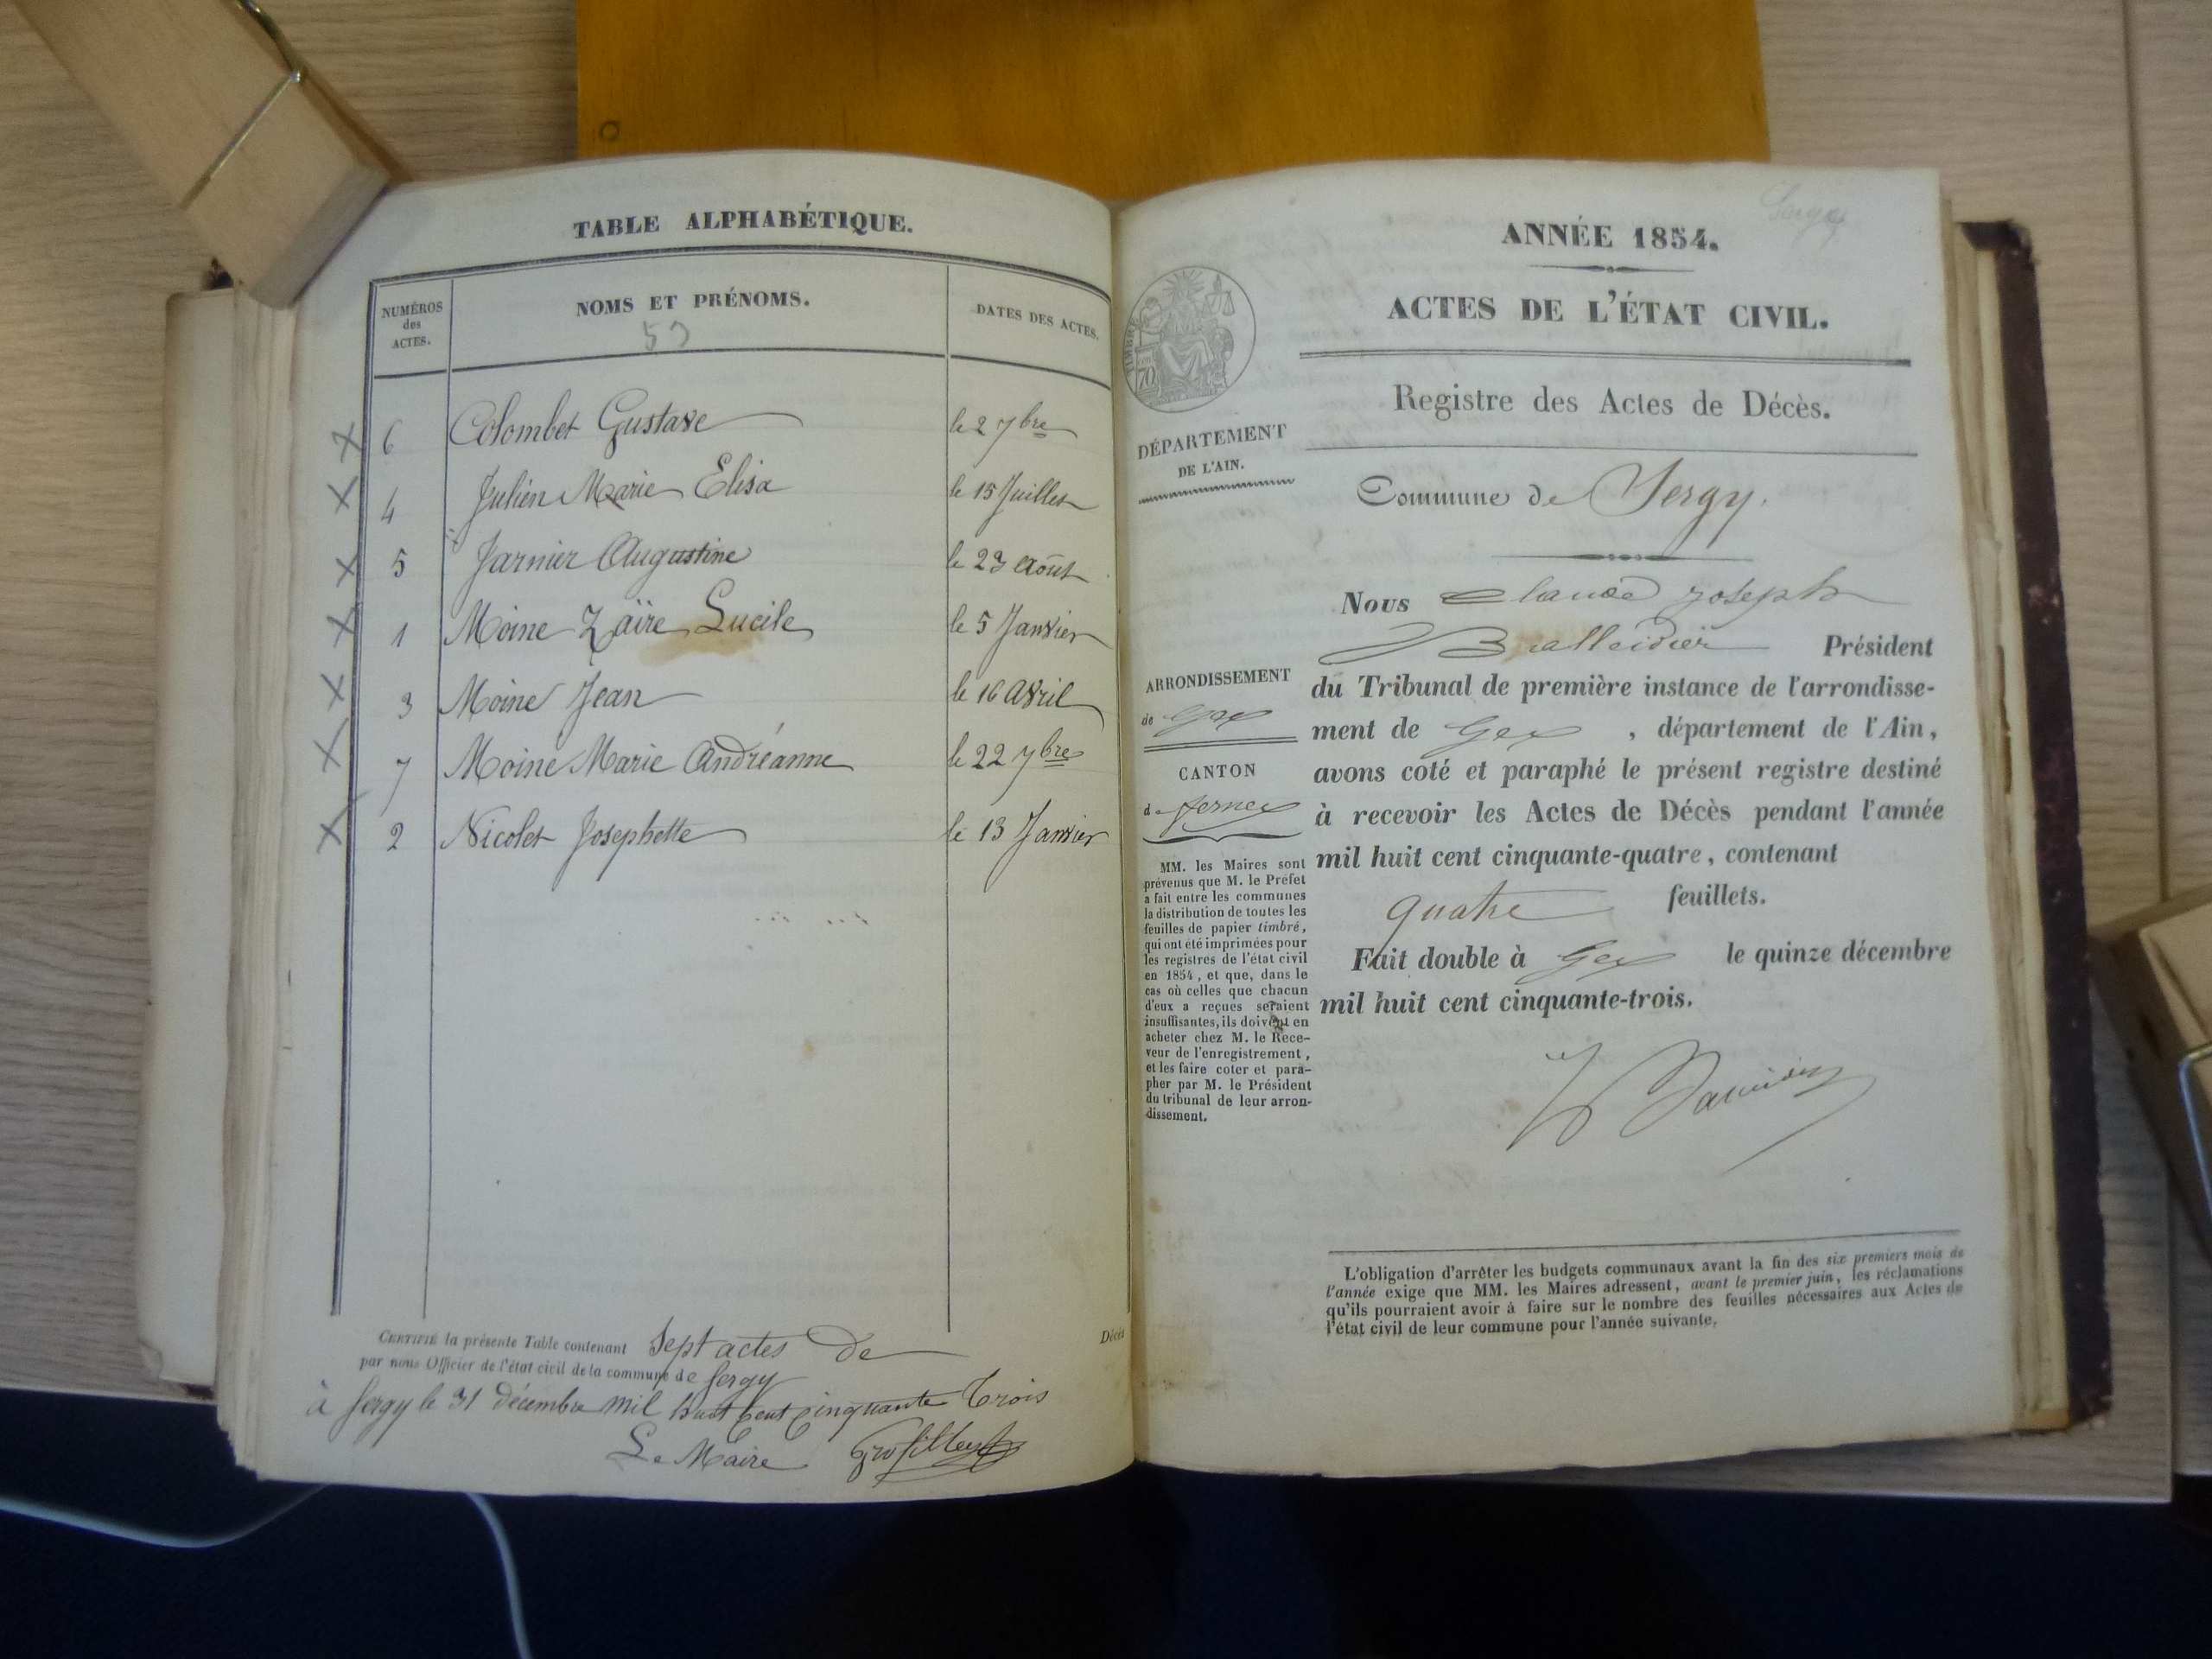 TABLE ALPHABÉTIQUE.
NUMÉROS
des
ACTES.
NOMS ET PRÉNOMS.
DATES DES ACTES.
6 Colombet Gustave le 2 7bre
4 Julien Marie Elisa le 15 Juillet
5 Jarnier Augustine le 23 Août
1 Moine Zaïre Lucile le 5 Janvier
3 Moine Jean le 16 Avril
7 Moine Marie Andréanne le 22 7bre
2 Nicolet Josephette le 13 Janvier
CERTIFIÉ la présente Table contenant Sept actes de Décès
par nous Officier de l'état civil de la commune de Sergy
à Sergy le 31 décembre mil huit cent cinquante trois
Le Maire Grosfilley
Sergy
ANNÉE 1854.
ACTES DE L'ÉTAT CIVIL.
TIMBRE
70
Registre des Actes de Décès.
DÉPARTEMENT
DE L'AIN.
Commune de Sergy.
ARRONDISSEMENT
de Gex
CANTON
de ferney
MM. les Maires sont
prévenus que M. le Préfet
a fait entre les communes
la distribution de toutes les
feuilles de papier timbré,
qui ont été imprimées pour
les registres de l'état civil
en 1854, et que, dans le
cas où celles que chacun
d'eux a reçues seraient
insuffisantes, ils doivent en
acheter chez M. le Rece-
veur de l'enregistrement,
et les faire coter et para-
pher par M. le Président
du tribunal de leur arron-
dissement.
Nous Claude Joseph
Président
du Tribunal de première instance de l'arrondisse-
ment de Gex, département de l'Ain,
avons coté et paraphé le présent registre destiné
à recevoir les Actes de Décès pendant l'année
mil huit cent cinquante-quatre, contenant
quatre feuillets.
Fait double à Gex le quinze décembre
mil huit cent cinquante-trois.
L'obligation d'arrêter les budgets communaux avant la fin des six premiers mois de
l'année exige que MM. les Maires adressent, avant le premier juin, les réclamations
qu'ils pourraient avoir à faire sur le nombre des feuilles nécessaires aux Actes de
l'état civil de leur commune pour l'année suivante.